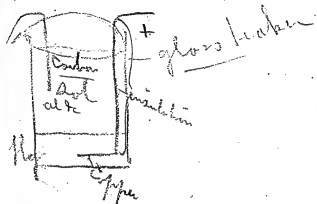 +
glass beaker
Carbon
Sol
insulation
Hg
Copper